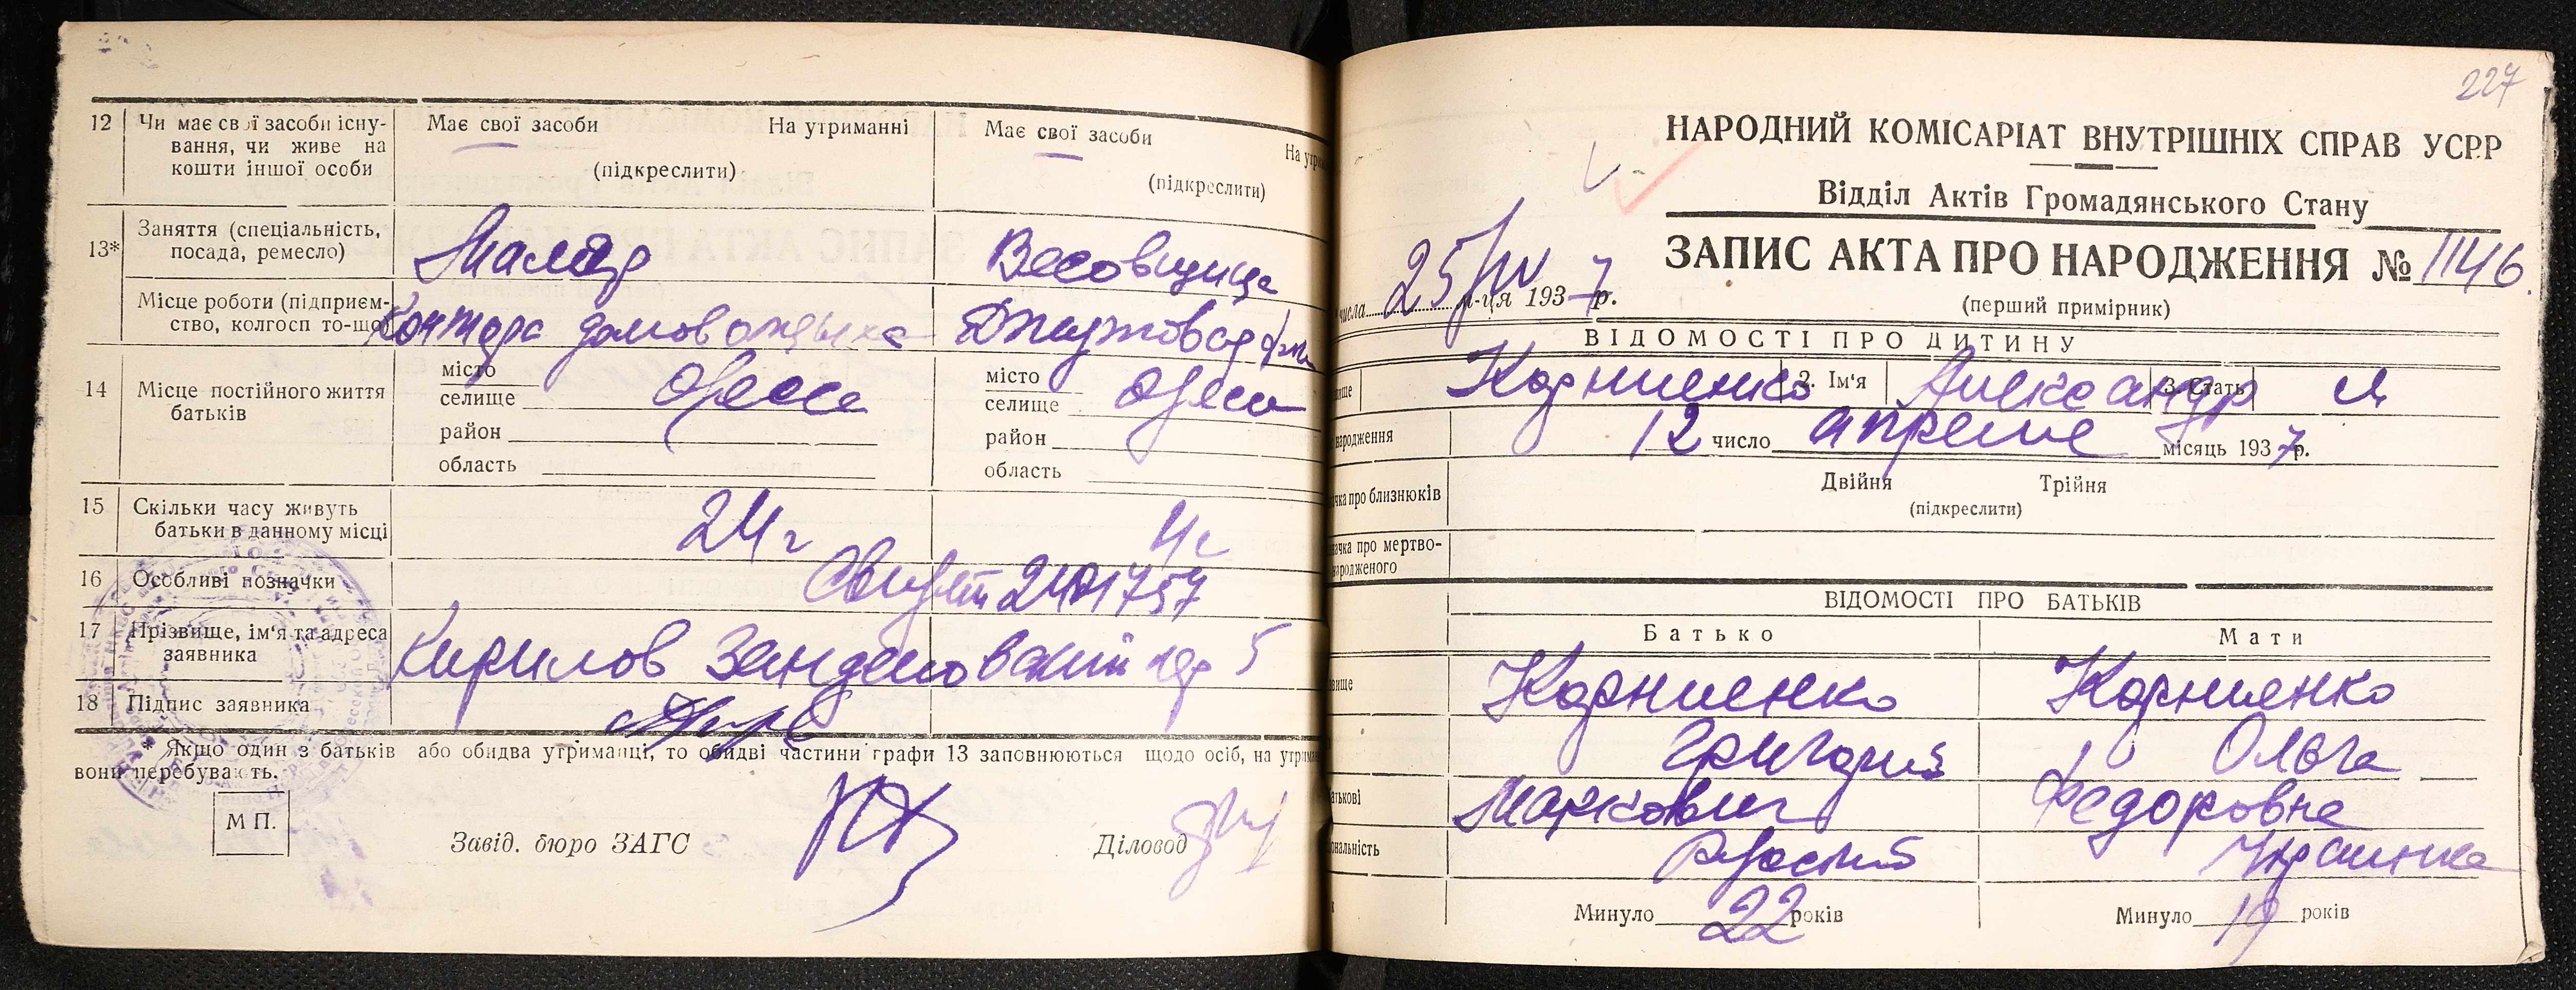 12 Чи має свої засоби існу-
вання, чи живе на
кошти іншої особи
Має свої засоби На утриманні
(підкреслити)
Має свої засоби На утрим
(підкреслити)
13* Заняття (спеціальність,
посада, ремесло)
Маляр
Весовщица
Місце роботи (підприєм-
ство, колгосп то-що)
Контора
14 Місце постійного життя
батьків
місто
селище Одесса
район
область
місто
селище Одесса
район
область
15 Скільки часу живуть
батьки в данному місці
24 г
16 Особливі позначки
17 Прізвище, ім'я та адреса
заявника
Кирилов 5
18 Підпис заявника
* Якщо один з батьків або обидва утриманці, то обидві частини графи 13 заповнюються щодо осіб, на утрим
вони перебувають.
М П.
Завід. бюро ЗАГС
Діловод
227
НАРОДНИЙ КОМІСАРІАТ ВНУТРІШНІХ СПРАВ УСРР
Відділ Актів Громадянського Стану
ЗАПИС АКТА ПРО НАРОДЖЕННЯ № 1146
числа 25/IV м-ця 1937 р.
(перший примірник)
ВІДОМОСТІ ПРО ДИТИНУ
Корниенко 2. Ім'я Александр 3. Стать м
народження 12 число апреля місяць 1937 р.
чка про близнюків
Двійня Трійня
(підкреслити)
начка про мертво-
народженого
ВІДОМОСТІ ПРО БАТЬКІВ
Батько Мати
вище Корниенко Корниенко
Григорий Ольга
атькові Маркович Федоровна
ональність Русский Украинка
Минуло 22 років Минуло 19 років